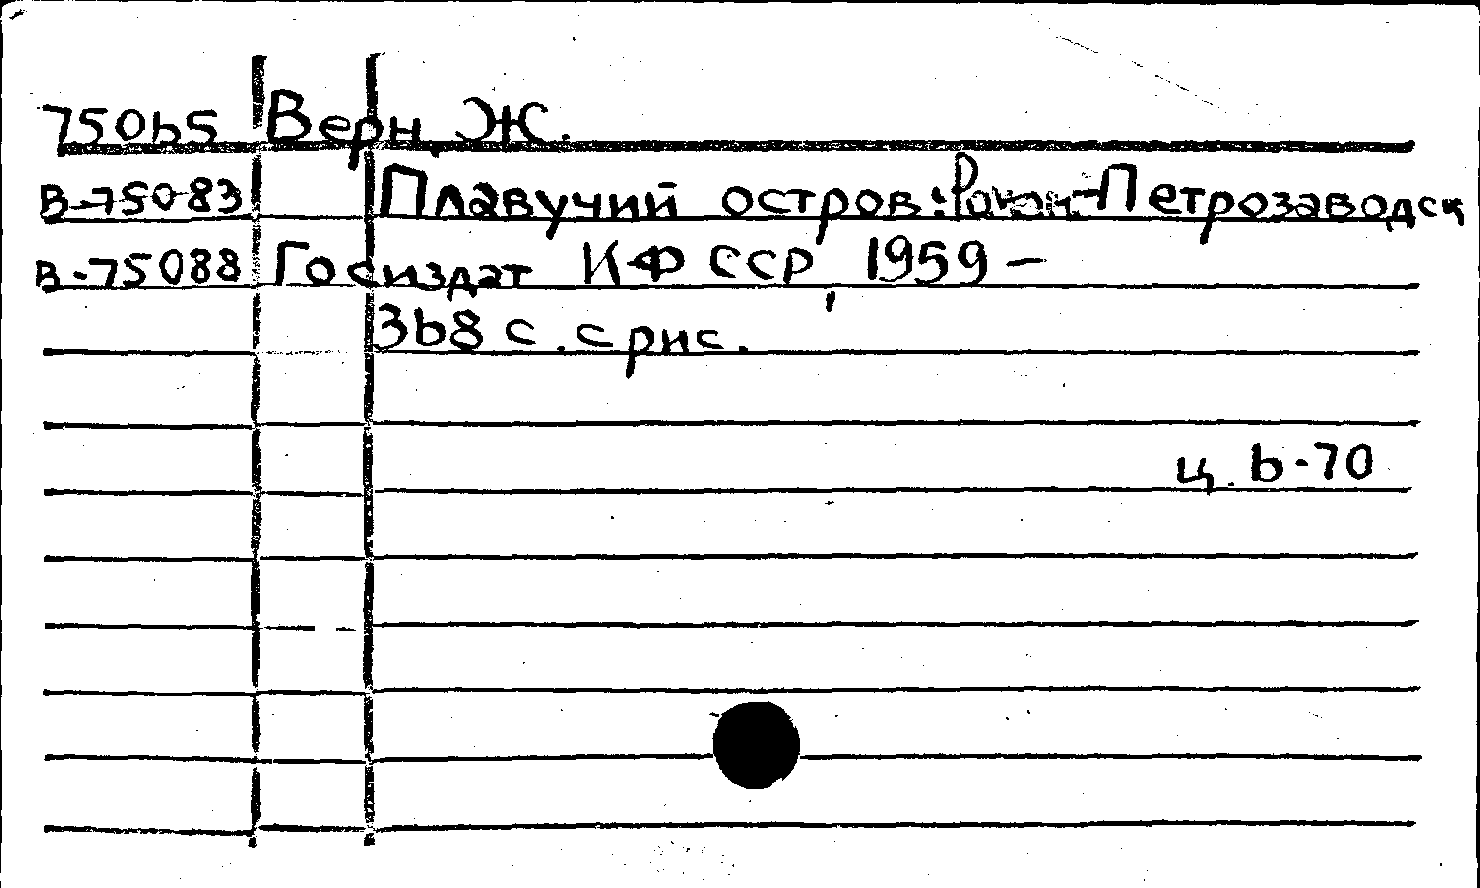 75065 Верн, Ж.
В-75083 Плавучий остров: Роман.-Петрозаводск
В-75088 Госиздат КФ ССР, 1959 -
368 с. с рис.
ц. 6-70